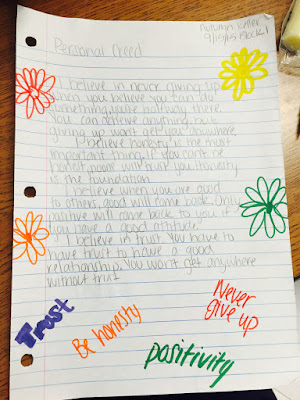 Autumn Keller
9/15/15 Block 1
Personal Creed
I believe in never giving up
when you believe you can do
something you're halfway there.
You can achieve anything, but
giving up won't get you anywhere.
I believe honesty is the most
important thing. If you can't be
honest, noone will trust you. Honesty
is the foundation.
I believe when you are good
to others, good will come back. Only
positive will come back to you if
you have a good attitude.
I believe in trust. You have to
have trust to have a good
relationship. You won't get anywhere
without trust
Trust
Be honesty
Never
give up
positivity